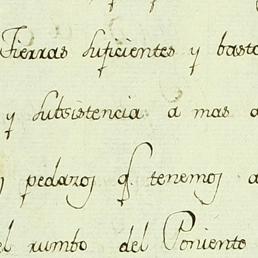 Tierras suficientes y basta
y subsistencia a mas d
pedazos q. tenemos a
el rumbo del Poniente